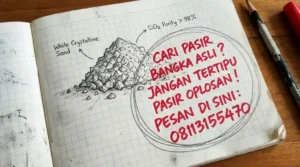 SiO₂ Purity > 98%
White Crystalline
Sand
CARI PASIR
BANGKA ASLI?
JANGAN TERTIPU
PASIR OPLOSAN!
PESAN DI SINI:
08113155470